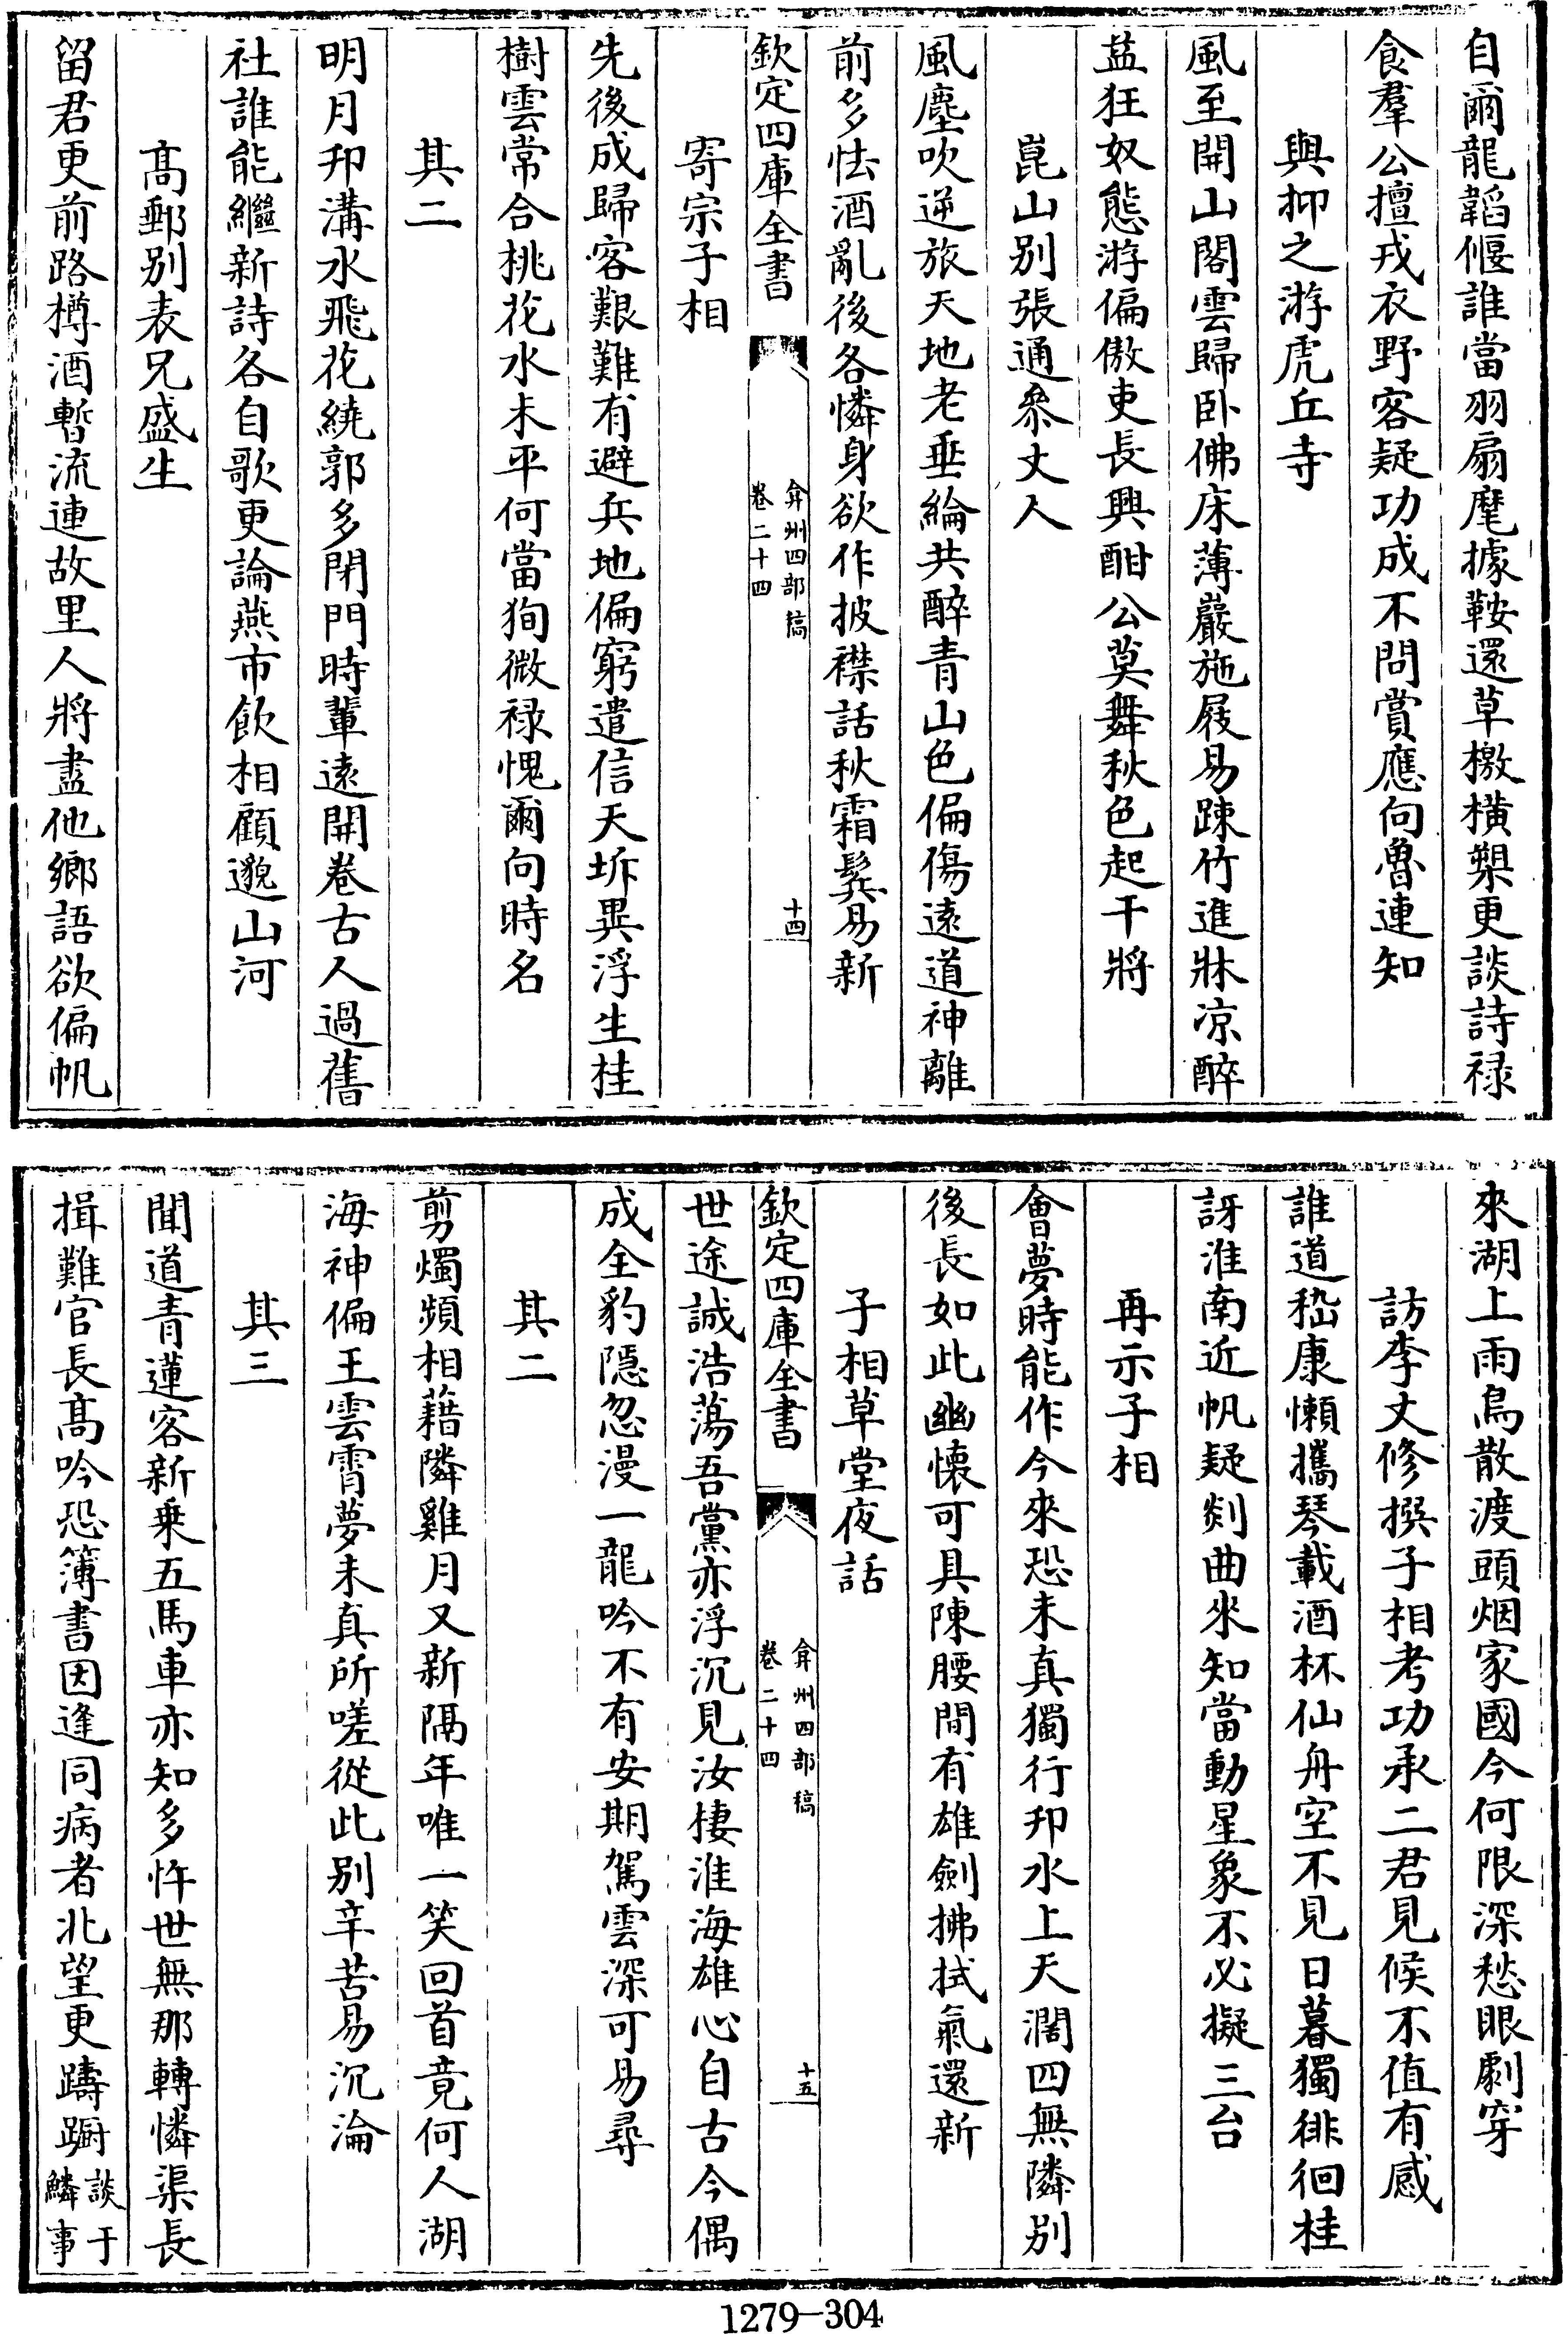 自爾龍韜偃誰當羽扇麾據鞍還草檄橫槊更談詩祿
食羣公擅戎衣野客疑功成不問賞應向魯連知
與抑之游虎丘寺
風至開山閣雲歸卧佛床薄巖施屐易踈竹進牀凉醉
益狂奴態游偏傲吏長興酣公莫舞秋色起干將
崑山别張通叅丈人
風塵吹逆旅天地老垂綸共醉青山色偏傷遠道神離
前多怯酒亂後各憐身欲作披襟話秋霜鬂易新
欽定四庫全書
弇州四部稿
卷二十四
十四
寄宗子相
先後成歸客艱難有避兵地偏窮遣信天坼異浮生桂
樹雲常合桃花水未平何當狥微禄愧爾向時名
其二
明月邗溝水飛花繞郭多閉門時輩遠開卷古人過舊
社誰能繼新詩各自歌更論燕市飲相顧邈山河
髙郵别表兄盛生
留君更前路樽酒暫流連故里人將盡他鄉語欲偏帆
來湖上雨鳥散渡頭烟家國今何限深愁眼劇穿
訪李丈修撰子相考功承二君見候不值有感
誰道嵇康懶攜琴載酒杯仙舟空不見日暮獨徘徊桂
訝淮南近帆疑剡曲來知當動星象不必擬三台
再示子相
會夢時能作今來恐未真獨行邗水上天濶四無隣别
後長如此幽懐可具陳腰間有雄劍拂拭氣還新
子相草堂夜話
欽定四庫全書
弇州四部稿
卷二十四
十五
世途誠浩蕩吾黨亦浮沉見汝棲淮海雄心自古今偶
成全豹隱忽漫一龍吟不有安期駕雲深可易尋
其二
剪燭頻相藉隣雞月又新隔年唯一笑回首竟何人湖
海神偏王雲霄夢未真所嗟從此别辛苦易沉淪
其三
聞道青蓮客新乗五馬車亦知多忤世無那轉憐渠長
揖難官長髙吟恐簿書因逢同病者北望更躊蹰談于
鱗事
1279-304